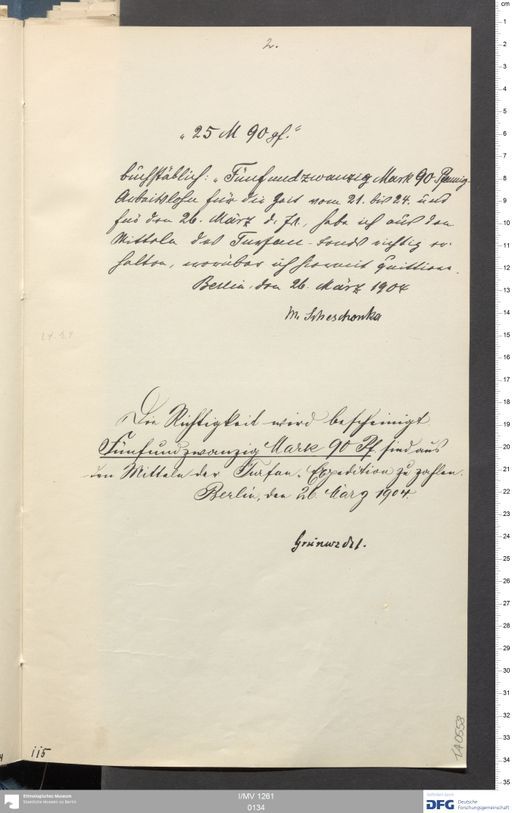 2.
„25 M 90 pf.“
buchstäblich: „Fünfundzwanzig Mark 90 Pfennig
Arbeitslohn für die Zeit vom 21. bis 24. und
für den 26. März d. Js, habe ich aus den
Mitteln des Turfan-fonds richtig er-
halten, worüber ich hiermit quittiere.
Berlin, den 26. März 1904
M. Scheschonka
Die Richtigkeit wird bescheinigt.
Fünfundzwanzig Mark 90 Pf sind aus
den Mitteln der Turfan-Expedition zu zahlen.
Berlin, den 26 März 1904.
Grünwedel.
115
1A0553
Ethnologisches Museum
Staatliche Museen zu Berlin
I/MV 1261
0134
Gefördert durch
DFG Deutsche
Forschungsgemeinschaft
cm
1
2
3
4
5
6
7
8
9
10
11
12
13
14
15
16
17
18
19
20
21
22
23
24
25
26
27
28
29
30
31
32
33
34
35